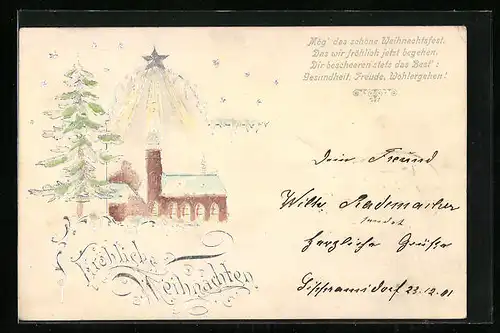 Mög' das schöne Weihnachtsfest.
Das wir fröhlich jetzt begehen,
Dir bescheeren stets das Best':
Gesundheit, Freude, Wohlergehen!
Dein Freund
Willi Rademacher
sendet
herzliche Grüße
23.12.01
Fröhliche
Weihnachten.